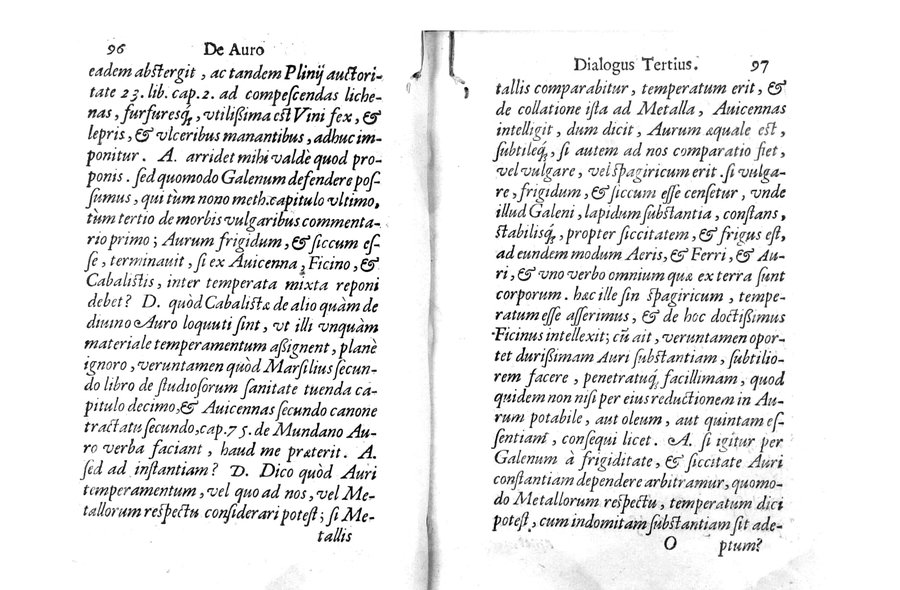 96 De Auro
eadem abſtergit, ac tandem Plinij auctori-
tate 23. lib. cap. 2. ad compeſcendas liche-
nas, furfureſq́;, vtiliſſima eſt Vini fex, &
lepris, & vlceribus manantibus, adhuc im-
ponitur. A. arridet mihi valdè quod pro-
ponis. ſed quomodo Galenum defendere poſ-
ſumus, qui tùm nono meth. capitulo vltimo,
tum tertio de morbis vulgaribus commenta-
rio primo; Aurum frigidum, & ſiccum eſ-
ſe, terminauit, ſi ex Auicenna, Ficino, &
Cabaliſtis, inter temperata mixta reponi
debet? D. quòd Cabaliſtæ de alio quàm de
diuino Auro loquuti ſint, vt illi vnquàm
materiale temperamentum aſſignent, planè
ignoro, veruntamen quòd Marſilius ſecun-
do libro de ſtudioſorum ſanitate tuenda ca-
pitulo decimo, & Auicennas ſecundo canone
tractatu ſecundo, cap. 75. de Mundano Au-
ro verba faciant, haud me præterit. A.
ſed ad inſtantiam? D. Dico quòd Auri
temperamentum, vel quo ad nos, vel Me-
tallorum reſpectu conſiderari poteſt; ſi Me-
tallis
Dialogus Tertius. 97
tallis comparabitur, temperatum erit, &
de collatione iſta ad Metalla, Auicennas
intelligit, dum dicit, Aurum æquale eſt,
ſubtileq́;, ſi autem ad nos comparatio fiet,
vel vulgare, vel ſpagiricum erit. ſi vulga-
re, frigidum, & ſiccum eſſe cenſetur, vnde
illud Galeni, lapidum ſubſtantia, conſtans,
ſtabiliſq́;, propter ſiccitatem, & frigus eſt,
ad eundem modum Aeris, & Ferri, & Au-
ri, & vno verbo omnium quæ ex terra ſunt
corporum. hæc ille ſin ſpagiricum, tempe-
ratum eſſe aſſerimus, & de hoc doctiſſimus
Ficinus intellexit; cū ait, veruntamen opor-
tet duriſſimam Auri ſubſtantiam, ſubtilio-
rem facere, penetratuq́; facillimam, quod
quidem non niſi per eius reductionem in Au-
rum potabile, aut oleum, aut quintam eſ-
ſentiam, conſequi licet. A. ſi igitur per
Galenum à frigiditate, & ſiccitate Auri
conſtantiam dependere arbitramur, quomo-
do Metallorum reſpectu, temperatum dici
poteſt, cum indomitam ſubſtantiam ſit ade-
O ptum?